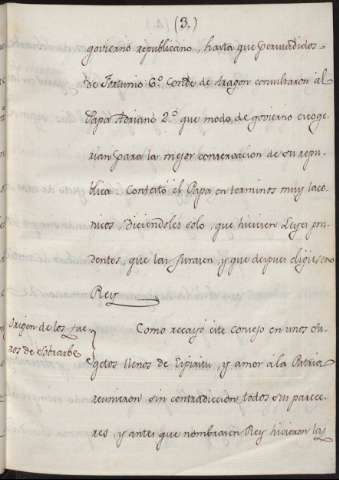 (3.)
govierno republicano, hasta que persuadidos
de Fortunio 6.º Conde de Aragon consultaron al
Papa Adriano 2.º que modo de govierno escoge
rian para la mejor conservacion de su repu
blica. Contestó el Papa en terminos muy laco
nicos, Diciendoles solo, que hiciesen Leyes pru
dentes, que las jurasen, y que despues eligiesen
Rey
Origen de los fue
ros de Sobrarbe
Como recayó este consejo en unos su
getos llenos de Espiritu, y amor á la Patria
reunieron sin contradiccion todos sus parece
res, y antes que nombrasen Rey hicieron las